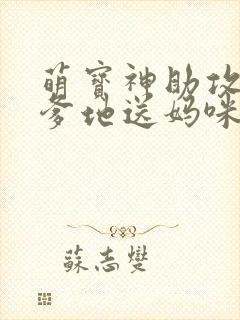 萌寶神助攻
爹地送媽咪
蘇志燮